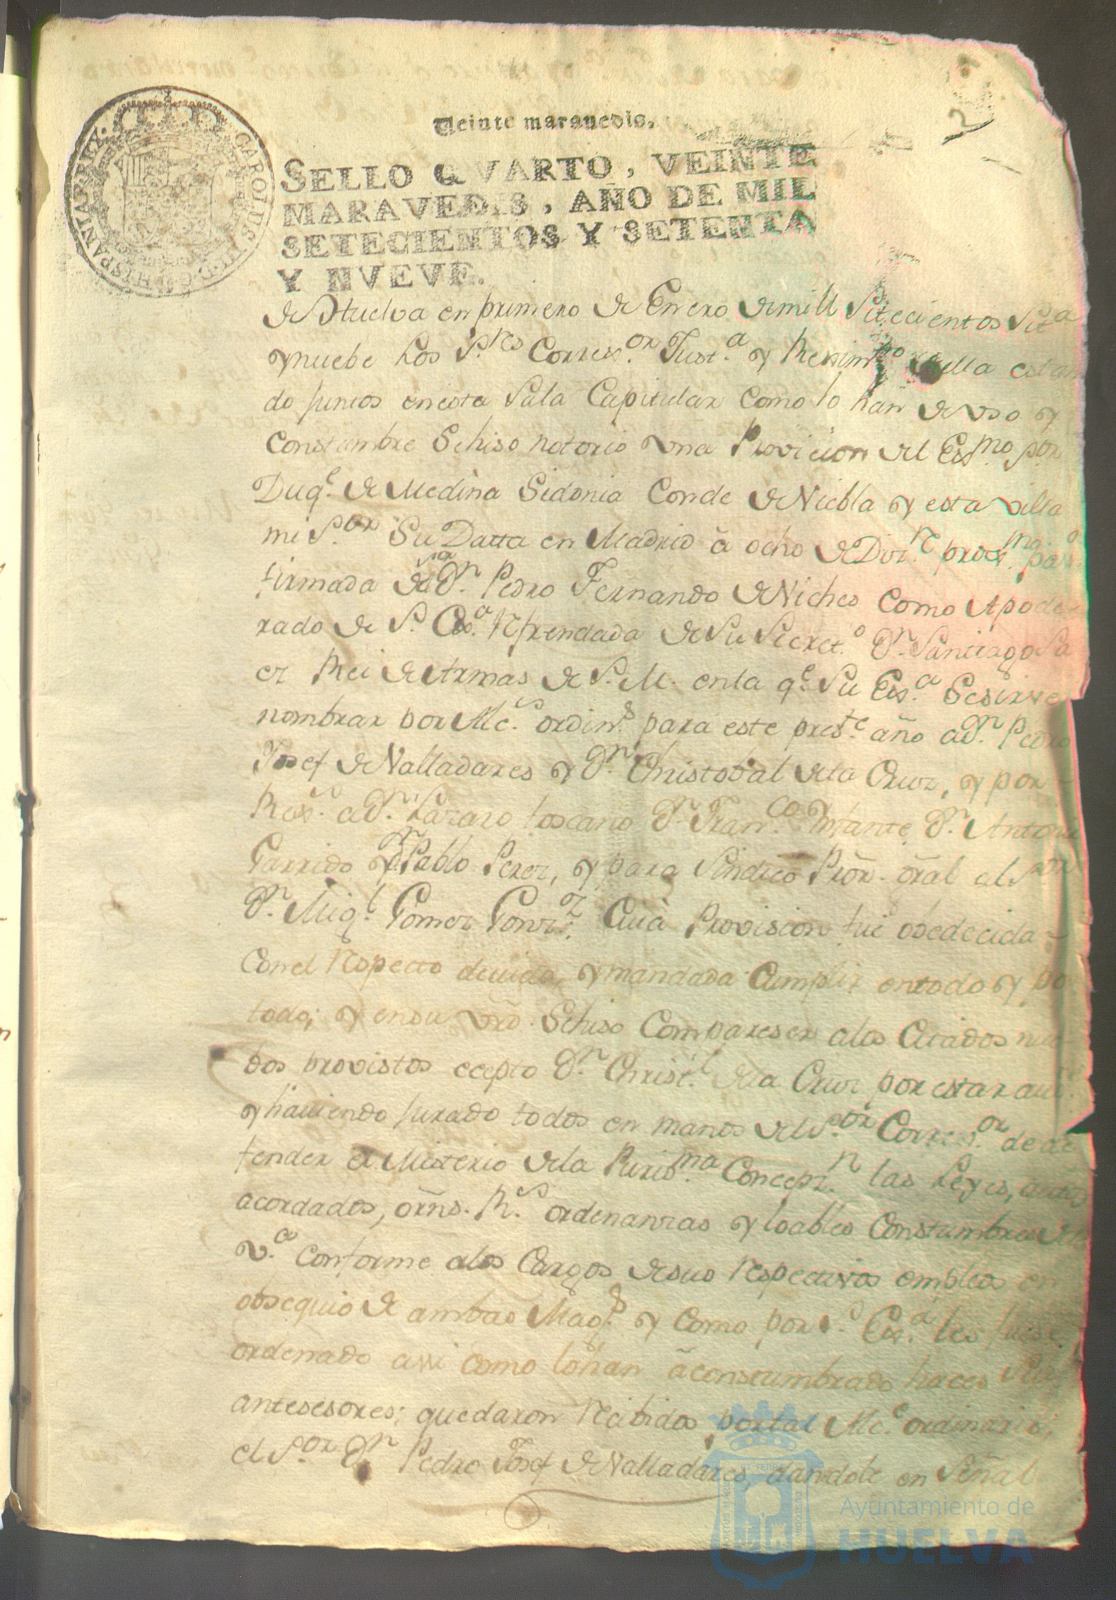 2
Veinte maravedis.
SELLO QVARTO, VEINTE
MARAVEDIS, AÑO DE MIL
SETECIENTOS Y SETENTA
Y NVEVE.
CAROLUS III D.G. HISPANIAR. REX.
de Huelva en primero de Enero de mill Setecientos Setta
y nuebe Los S.res Correx.or Just.a y Reximto della estan
do juntos en esta Sala Capitular como lo han de uso y
Constumbre Se hiso notorio una Provicion del Exmo por
Duq.e de Medina Sidonia Conde de Niebla y esta villa
mi S.or Su Datta en Madrid a ocho de Diz.re proxmo pao
firmada de D.n Pedro Fernando de Niches como Apode
rado de S. Ex.a Refrendada de Su Secret.o D.n Santiago Sa
ez Rei de Armas de S. M. en la q.e Su Ex.a Se sirve
nombrar por Alc.s ordin.s para este pres.te año a D.n Pedro
Josef de Valladares y D.n Christobal de la Cruz, y por
Rex.s a D.n Lazaro toscano D.n Fran.co Infante, D.n Antonio
Garrido y D.n Pablo Perez, y para Sindico Pror. gral al S.or
D.n Mig.l Gomez Gonz.z Cuia Provision fue obedecida
Con el Respecto devido, y mandada Cumplir en todo y por
todo; y en su vrd. Se hiso Compareser a los Citados nue
bos provistos ecepto D.n Christ.l de la Cruz por estar au.
y haviendo jurado todos en manos del S.or Correx.or de de
fender el Misterio de la Puris.ma Concepz.n las Leyes, autos
acordados, orns. R.s ordenanzas y loables Constumbres de
v.a conforme a los Cargos de sus Respectivos empleos en
obsequio de ambas Mag.s y como por S. Ex.a les fuese
ordenado assi como lo han aconstumbrado haces Sus
antesesores; quedaron Recibidos por tal Alc.e ordinario,
el S.or D.n Pedro Josef de Valladares, dandole en Señal
Ayuntamiento de
HUELVA